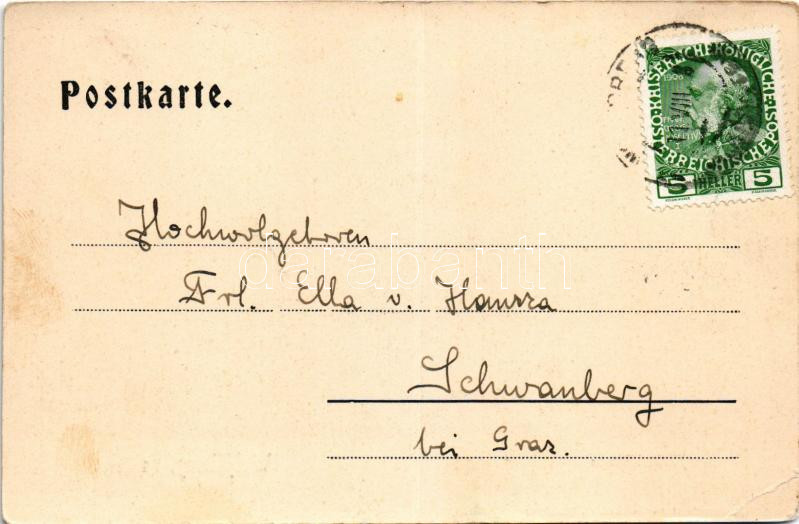 Postkarte.
KAISERLICHE KÖNIGLICHE
ÖSTERREICHISCHE POST
1908
5 HELLER 5
VIII
Hochwolgeboren
Frl. Ella v.
darabanth
Schwanberg
bei Graz.